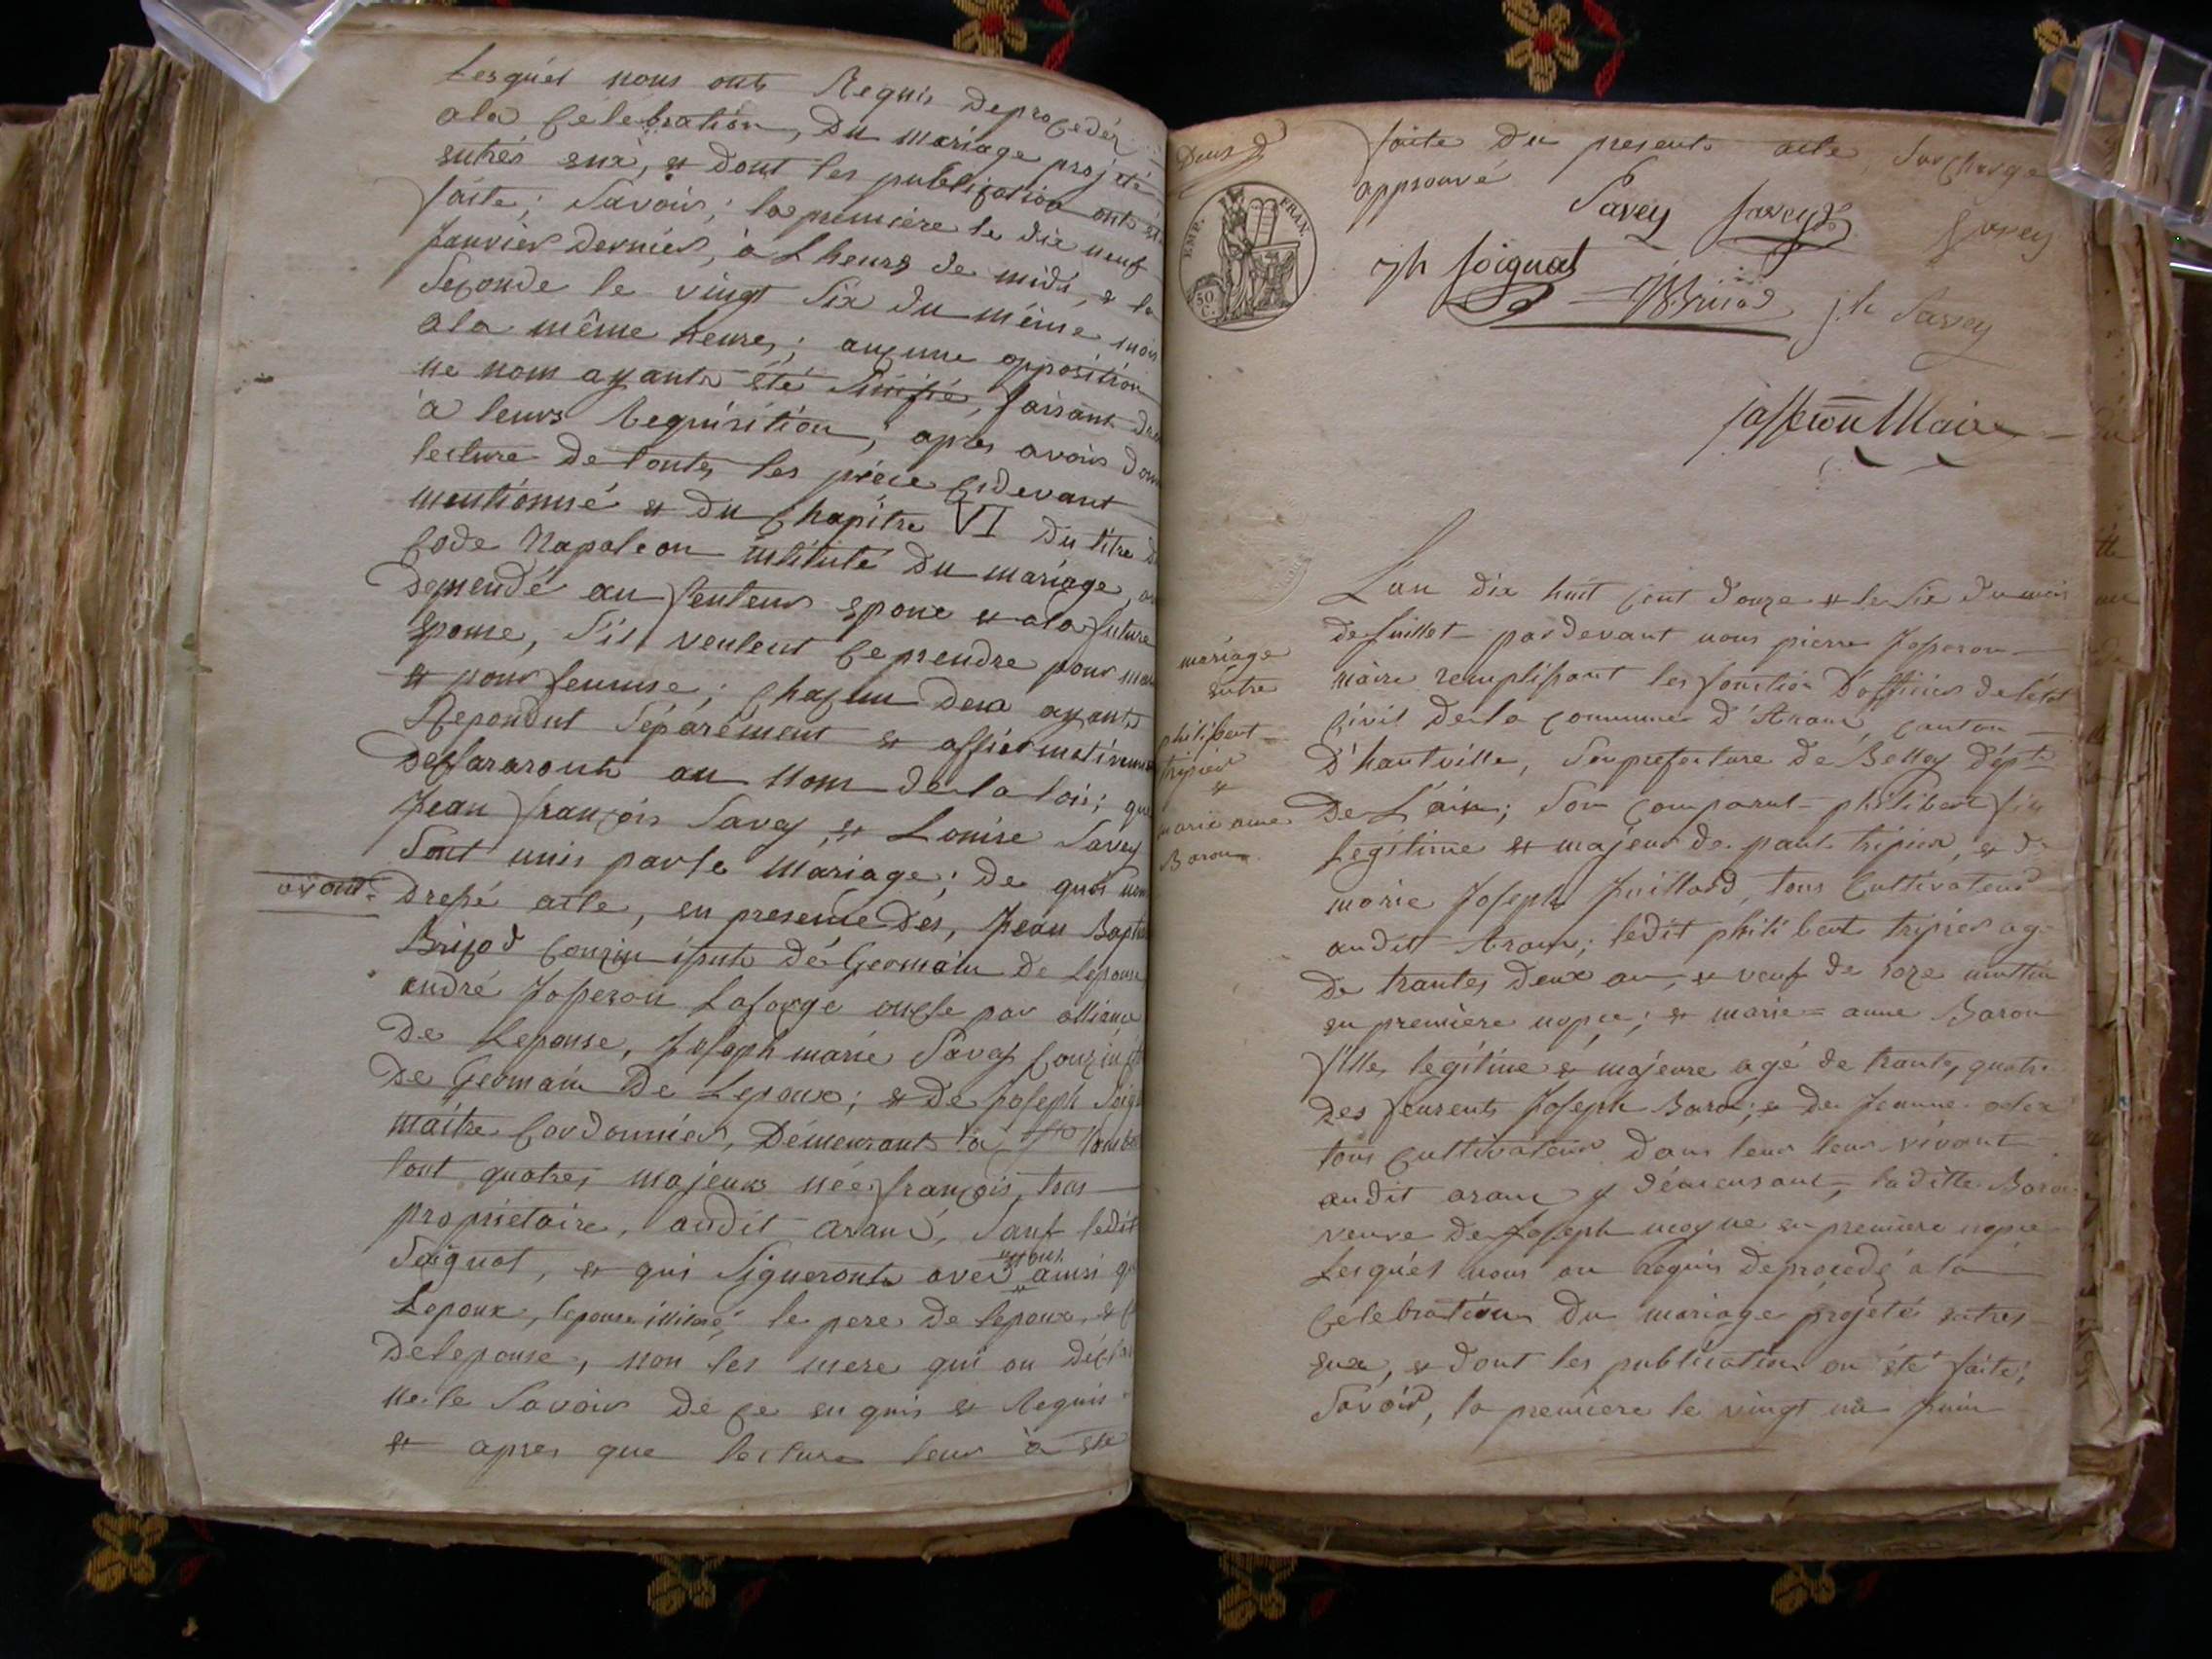 Lesquél nous onts Requis deprocedér
ala Célébration, Du mariage projeté
entrés eux, et dont les publication onts
faite; Savoir; la première le dix neuf
Janvier dernier, à Lheure de midi, et la
Seconde le vingt Six du même mois
ala même heure; aucune opposition
ne nom ayants été Sinifié, faisant
à leurs Requisition, apres avoir
lecture de toutes les pièce cidevant
mentionné et du Chapitre VI du titre
Code Napoleon intitulé Du mariage,
demendé au fenteur epoux et ala future
Epouse, S'il veulent ce prendre pour
et pour femme; Chacun deux ayants
Repondut Séparément et affiermativem
declararonts au Nom de la loi; que
Jean françois Savey et Louise Savey
Sont unis par le Mariage; de quoi
avont drefsé acte, en presence des, Jean Bapt
Brizod Couzin ifsuts dé Germain de Lepouse
andré Jofseron Laforge oncle par alliance
De Lepouse, Joseph marie Savey Couzin
De Germain De Lepoux; et De Joseph Soig
maitre Cordonnier, Démeurants à
tout quatre majeurs née françois, tous
propriétaire, audit aranc, Sauf ledit
Soignat, et qui Signeronts avec nous ainsi
Lepoux, lepouse illitaré, le pere de lepoux, et
Delepouse, non les mere qui on
ne le Savoir de ce enquis et Requis
et apres que lecture leur à
Deux
EMP. FRAN.
50 C.
faite du presents acte, Surcharge
approuvé
Savey Savey Savey
jh Soignat
jh Savey
Jofseron Maire
mariage
entre
philibert
tripier
et
marie anne
Baron
L'an dix huit Cent douze et le Six du mois
de Juillet pardevant nous pierre Jofseron
maire remplifsant les fonction D'officier de létat
Civil de la Commune d'Aranc, canton
D'hautville, Souprefecture de Belley dépt.
De L'ain; Son Comparut philibert fils
Legitime et majeur de paul tripier, et de
marie Joseph Juillard, tous Cultivateur
audit Aranc; ledit philibert tripier agé
de trantes deux an, et veuf de roze
en première nopce; et marie = anne Baron
fille legitime et majeure agé de trante, quatre
des feurents Joseph Baron; et de Jeanne
tous Cultivateur dans leur leur vivant
audit aranc y démeurant, laditte Baron
veuve de Joseph moyne en première nopce
Lesquél nous on Requis deprocedé à la
Célébration Du mariage projeté entres
eux, et dont les publication on été faite;
Savoir, la première le vingt un juin